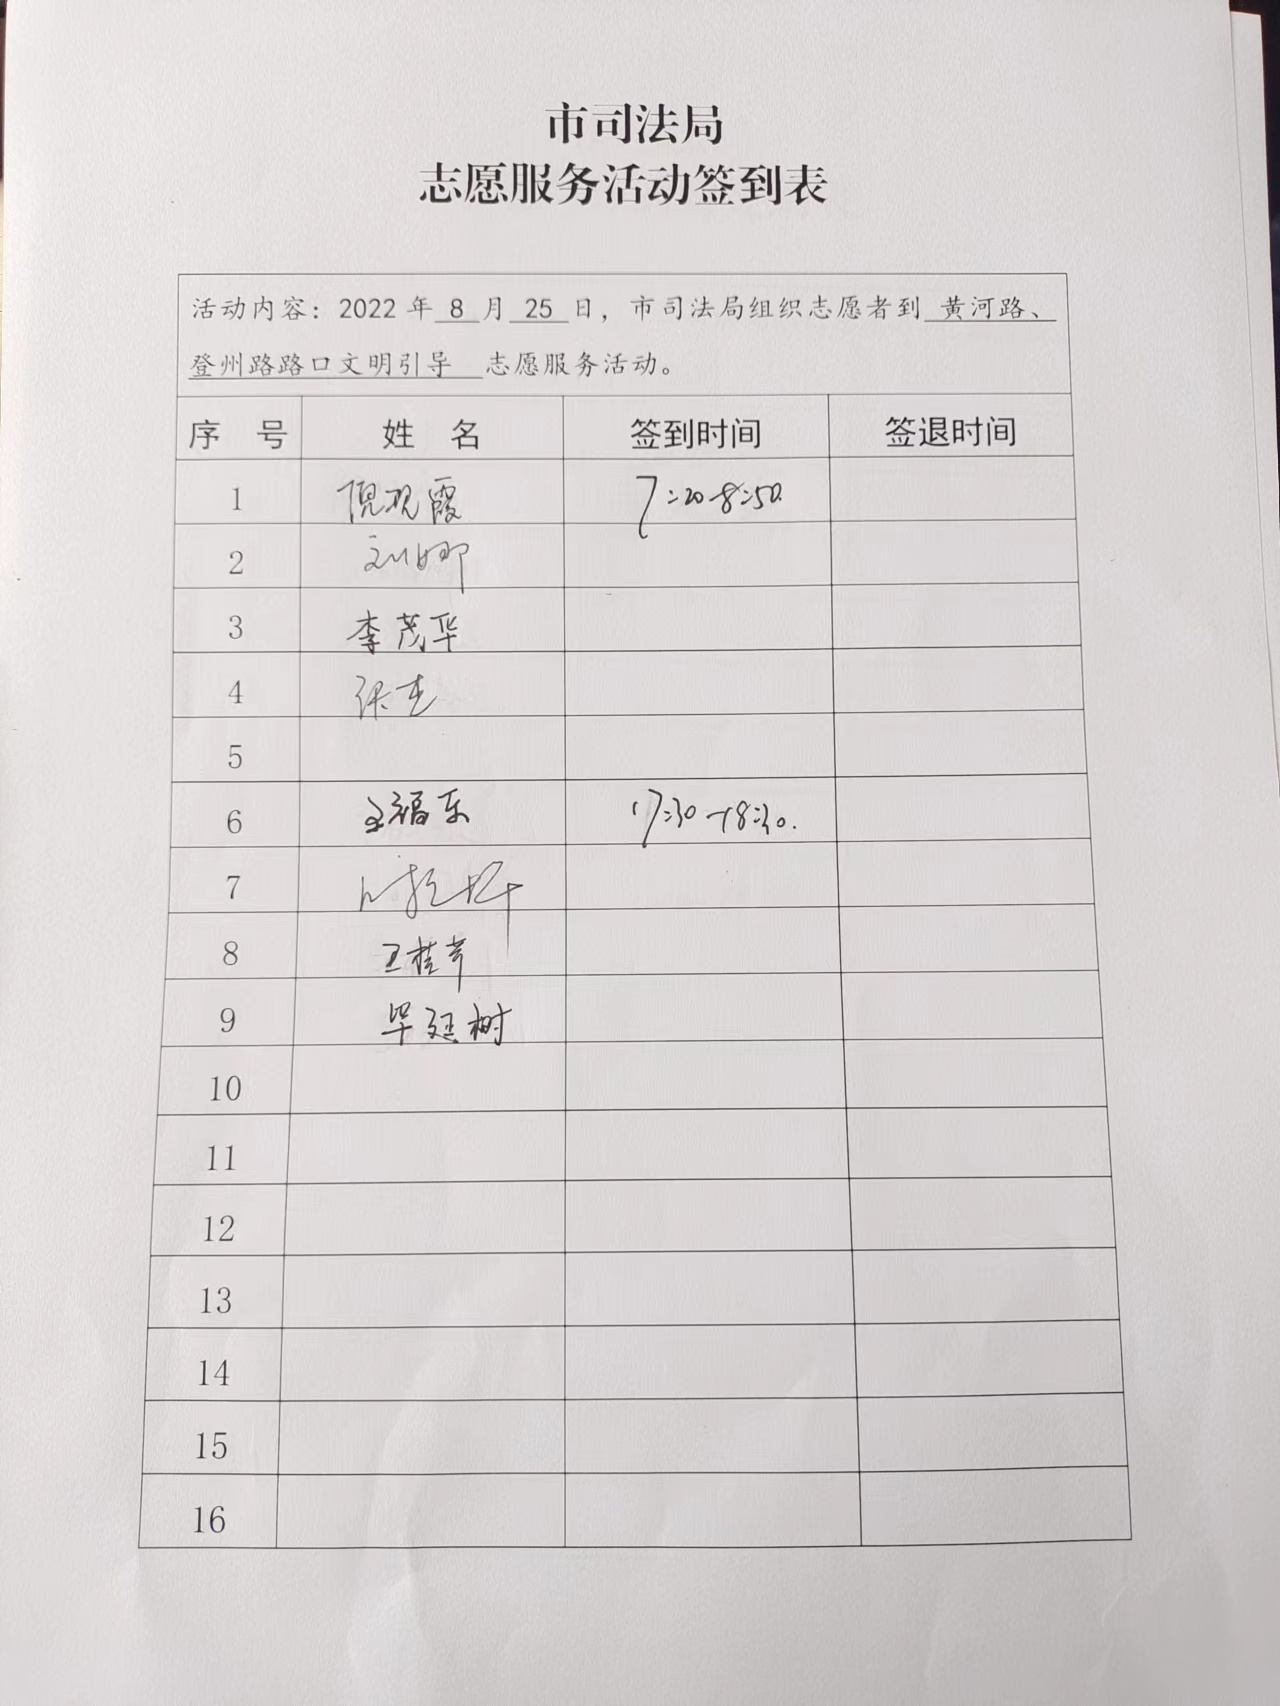 市司法局
志愿服务活动签到表
活动内容：2022年 8 月 25 日，市司法局组织志愿者到 黄河路、
登州路路口文明引导 志愿服务活动。
序 号 姓 名 签到时间 签退时间
1 倪砚霞 7:20-8:50.
2 刘娜
3 李茂华
4 张杰
5
6 王福东 17:30-18:30.
7
8 王桂芹
9 毕延树
10
11
12
13
14
15
16